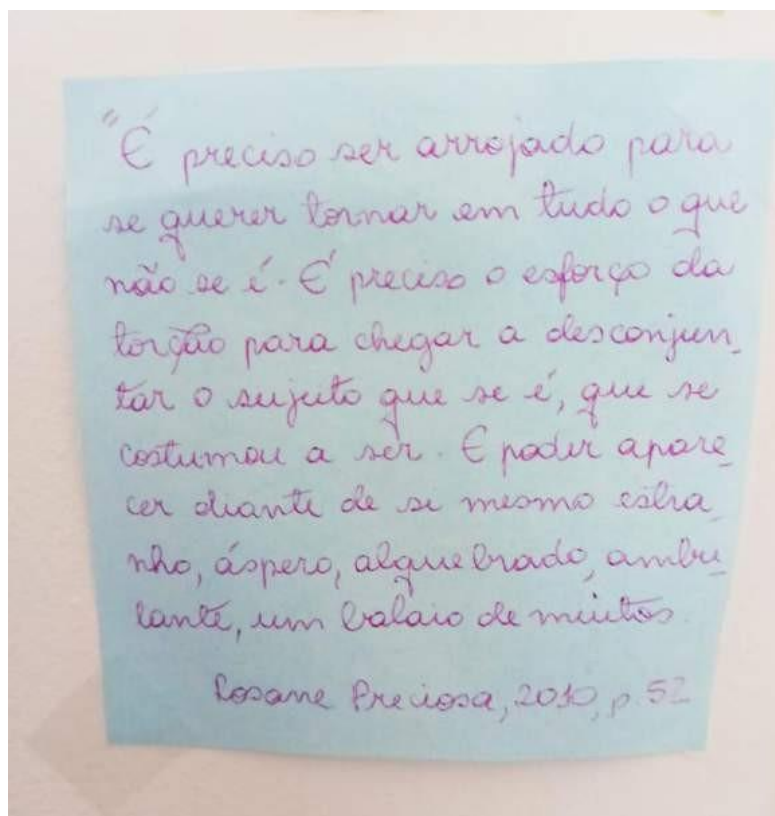 "É preciso ser arrojado para
se querer tornar em tudo o que
não se é. É preciso o esforço da
torção para chegar a desconjun_
tar o sujeito que se é, que se
costumou a ser. E poder apare_
cer diante de si mesmo estra_
nho, áspero, alquebrado, ambu_
lante, um balaio de muitos.
Rosane Preciosa, 2010, p. 52